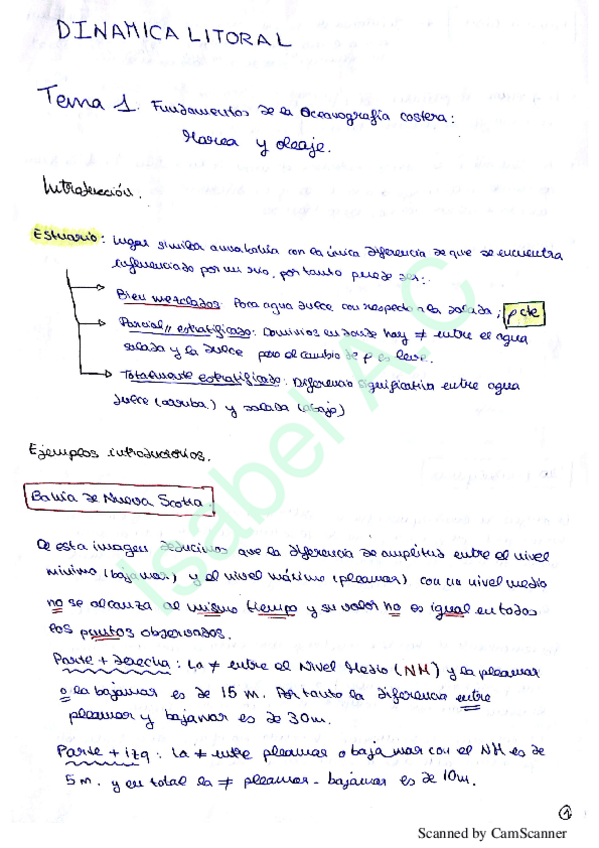 DINAMICA LITORAL
Tema 1. Fundamentos de la Oceanografía costera:
Marea y oleaje.
Introducción.
Estuario: Lugar similar a una bahía con la única diferencia de que se encuentra
influenciado por un río, por tanto puede ser:
Bien mezclados: Poca agua dulce con respecto a la salada; ρ cte
Parcial// estratificado: Dominios en donde hay ≠ entre el agua
salada y la dulce pero el cambio de ρ es leve.
Totalmente estratificado: Diferencia significativa entre agua
dulce (arriba) y salada (abajo)
Ejemplos introductorios.
Bahía de Nueva Scotia.
De esta imagen deducimos que la diferencia de amplitud entre el nivel
mínimo (bajamar) y el nivel máximo (pleamar) con un nivel medio
no se alcanza al mismo tiempo y su valor no es igual en todos
los puntos observados.
Parte + derecha: La ≠ entre el Nivel Medio (NM) y la pleamar
o la bajamar es de 15 m. Por tanto la diferencia entre
pleamar y bajamar es de 30m.
Parte + izq: la ≠ entre pleamar o bajamar con el NM es de
5 m. y en total la ≠ pleamar - bajamar es de 10m.
1
Isabel A.C
Scanned by CamScanner